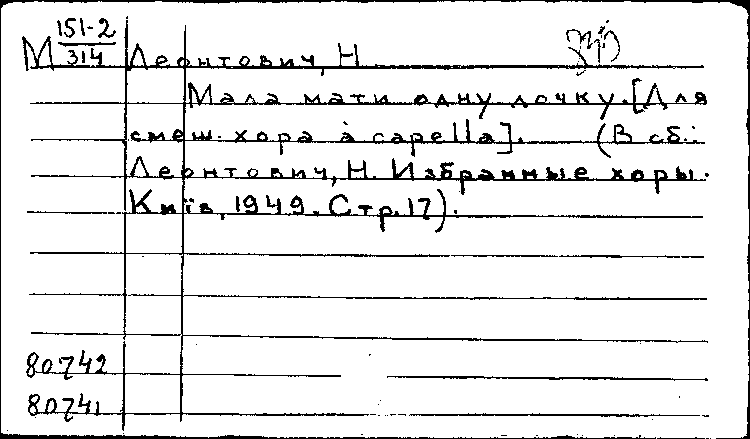 М 151-2/314 Леонтович, Н
Мала мати одну дочку. [Для
смеш. хора à capella]. (В сб.:
Леонтович, Н. Избранные хоры.
Київ, 1949. Стр. 17).
80742
80741